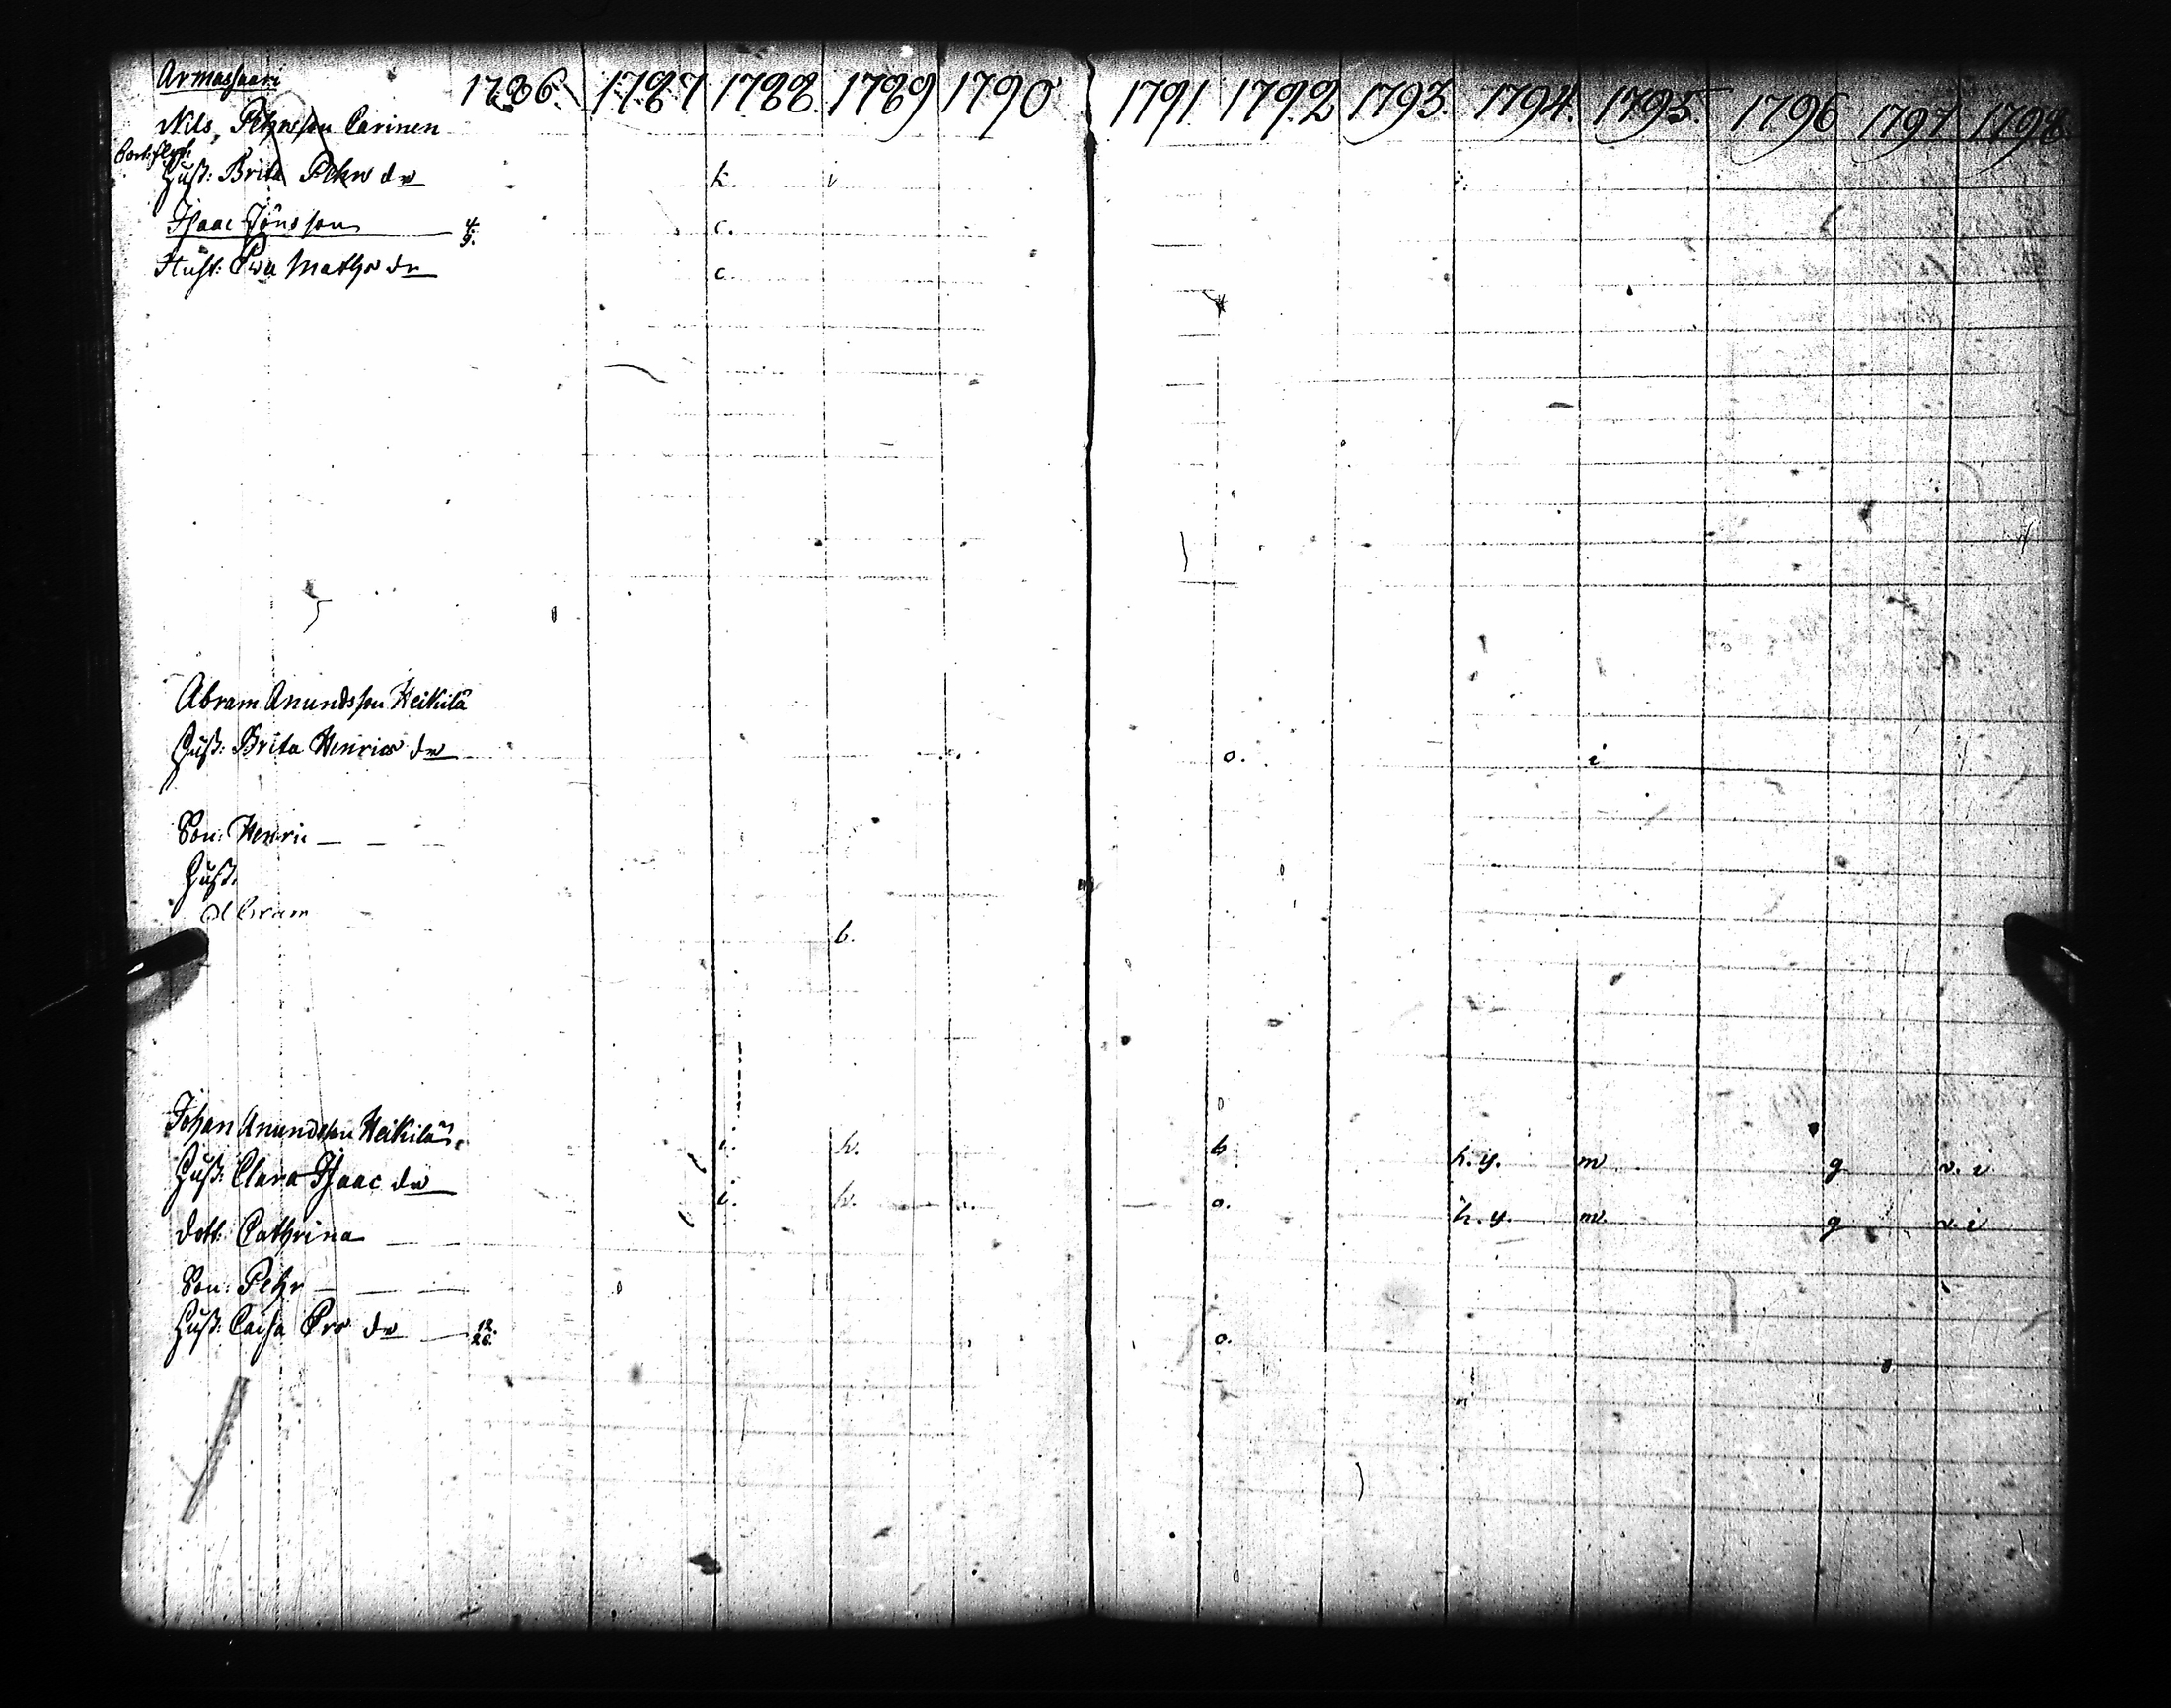 Armassaari 1786. 1787 1788. 1789 1790 1791 1792 1793. 1794. 1795. 1796 1797 1798.
Nils Pehrsson Carinen
Hust: Brita Pehrs dr k. i
Isaac Jönsson 4/9. c.
Hust: Ewa Maths dr c.
Abram Anundsson Heikilä
Hust: Brita Henrics dr o. i
Son: Henric
Hust:
Abram
b.
Johan Anundsson Heikilä i. h. b h. y. m g v. i
Hust: Clara Isaac dr i. h. o. h. y. m. g v. i
dott: Cathrina
Son: Pehr
Hust: Caisa Ers dr 12./26. o.